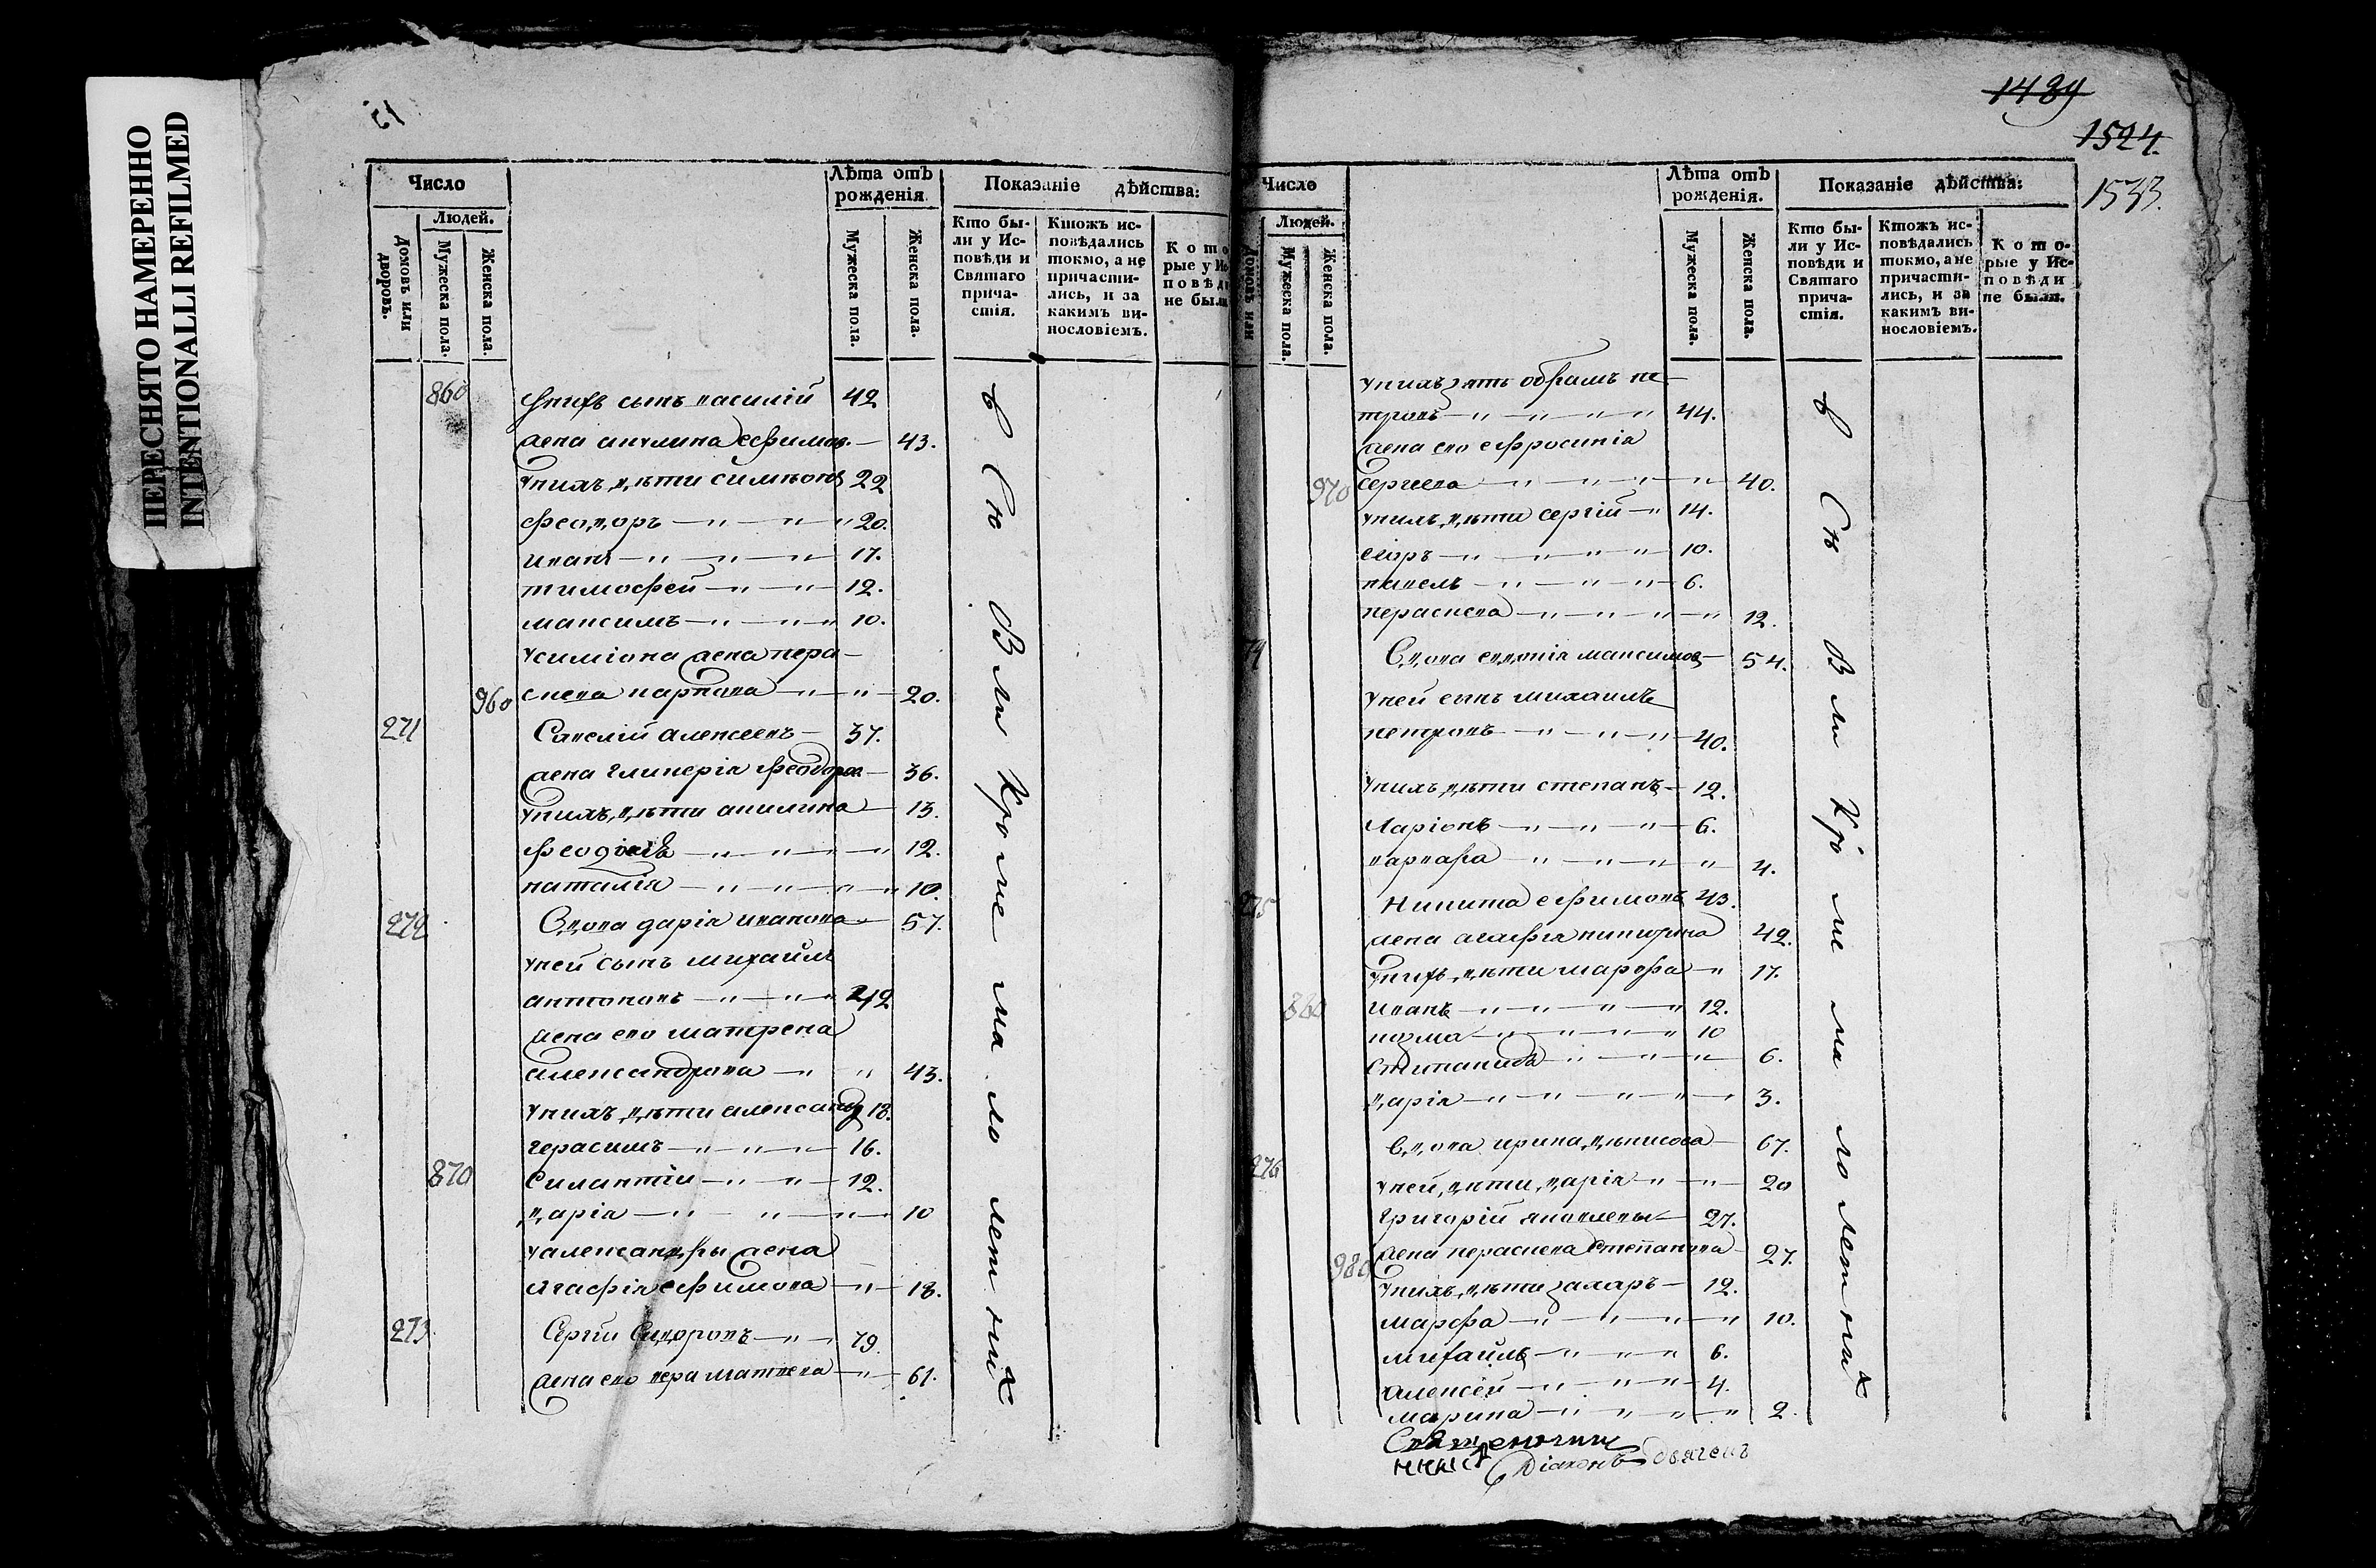 ПЕРЕСНЯТО НАМЕРЕННО
INTENTIONALLI REFILMED
15
Число
Людей.
Домовъ или дворовъ.
Мужеска пола.
Женска пола.
Лѣта отъ рожденія.
Мужеска пола.
Женска пола.
Показаніе дѣйства:
Кто были у Исповѣди и Святаго причастія.
Ктожъ исповѣдались токмо, а не причастились, и за какимъ винословіемъ.
Которые у Исповѣди не были
860 унихъ сынъ василій 42
жена акулина ефимов. 43.
унихъ дѣти симѣонъ 22
феодоръ 20.
иванъ 17.
тимофей 12.
максимъ 10.
усиміона жена пера-
960 скева карпова 20.
271 Савелій алексеевъ 37.
жена гликерія феодоров 36.
унихъ дѣти акилина 13.
феодосія 12.
наталія 10.
272 Вдова дарія иванова 57.
уней сынъ михаилъ
антоновъ 42
жена его матрена
александрова 43.
унихъ дѣти александр 18.
герасимъ 16.
870 Силантій 12.
дарія 10
уалександры жена
агафія ефимова 18.
273. Сергій Сидоровъ 79.
жена его вера матвева 61.
всѣ были кроме малолетних
1489
1524.
1533.
Число
Людей.
Домовъ или
Мужеска пола.
Женска пола.
Лѣта отъ рожденія.
Мужеска пола.
Женска пола.
Показаніе дѣйства:
Кто были у Исповѣди и Святаго причастія.
Ктожъ исповѣдались токмо, а не причастились, и за какимъ винословіемъ.
Которые у Исповѣди не были.
унихъ зять абрамъ пе-
тровъ 44.
жена его ефросинія
970 сергеева 40.
унихъ дѣти сергій 14.
егоръ 10.
павелъ 6.
пераскева 12.
74 Вдова евдокія максимов 54.
уней сынъ михаилъ
петровъ 40.
унихъ дѣти степанъ 12.
Ларіонъ 6.
варвара 4.
275 Никита ефимовъ 43.
жена агафия никифор 42.
унихъ дѣти марфа 17.
880 иванъ 12.
козма 10
Степанида 6.
дарія 3.
276 Вдова ирина денисова 67.
уней дѣти дарія 20
григорій яковлевъ 27.
980 жена пераскева степанова 27.
унихъ дѣти захаръ 12.
марфа 10.
михаилъ 6.
алексей 4.
марина 2.
всѣ были кроме малолетних
Діаконъ